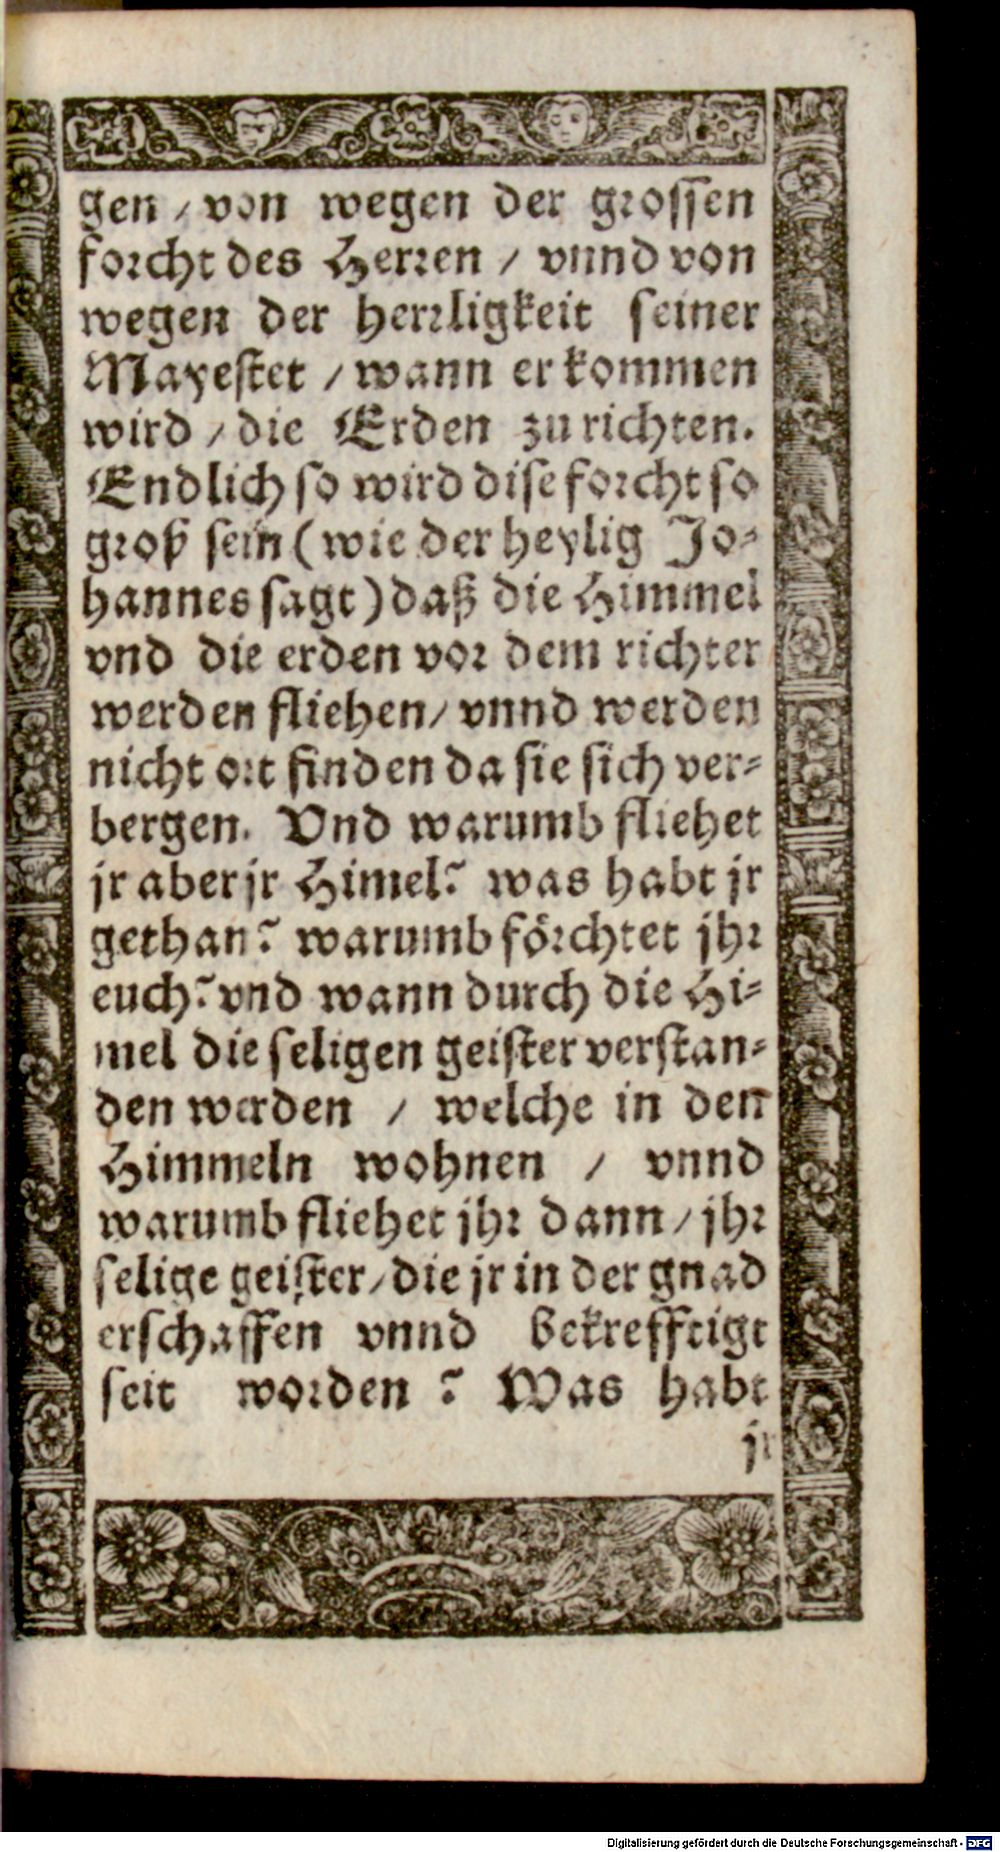 gen / von wegen der grossen
forcht des Herren / vnnd von
wegen der herrligkeit seiner
Mayestet / wann er kommen
wird / die Erden zu richten.
Endlich so wird dise forcht so
groß sein (wie der heylig Jo-
hannes sagt) daß die Himmel
vnd die erden vor dem richter
werden fliehen / vnnd werden
nicht ort finden da sie sich ver-
bergen. Vnd warumb fliehet
jr aber jr Himel? was habt jr
gethan? warumb förchtet jhr
euch? vnd wann durch die Hi-
mel die seligen geister verstan-
den werden / welche in den
Himmeln wohnen / vnnd
warumb fliehet jhr dann / jhr
selige geister / die jr in der gnad
erschaffen vnnd bekrefftigt
seit worden? Was habt
jr
Digitalisierung gefördert durch die Deutsche Forschungsgemeinschaft - DFG